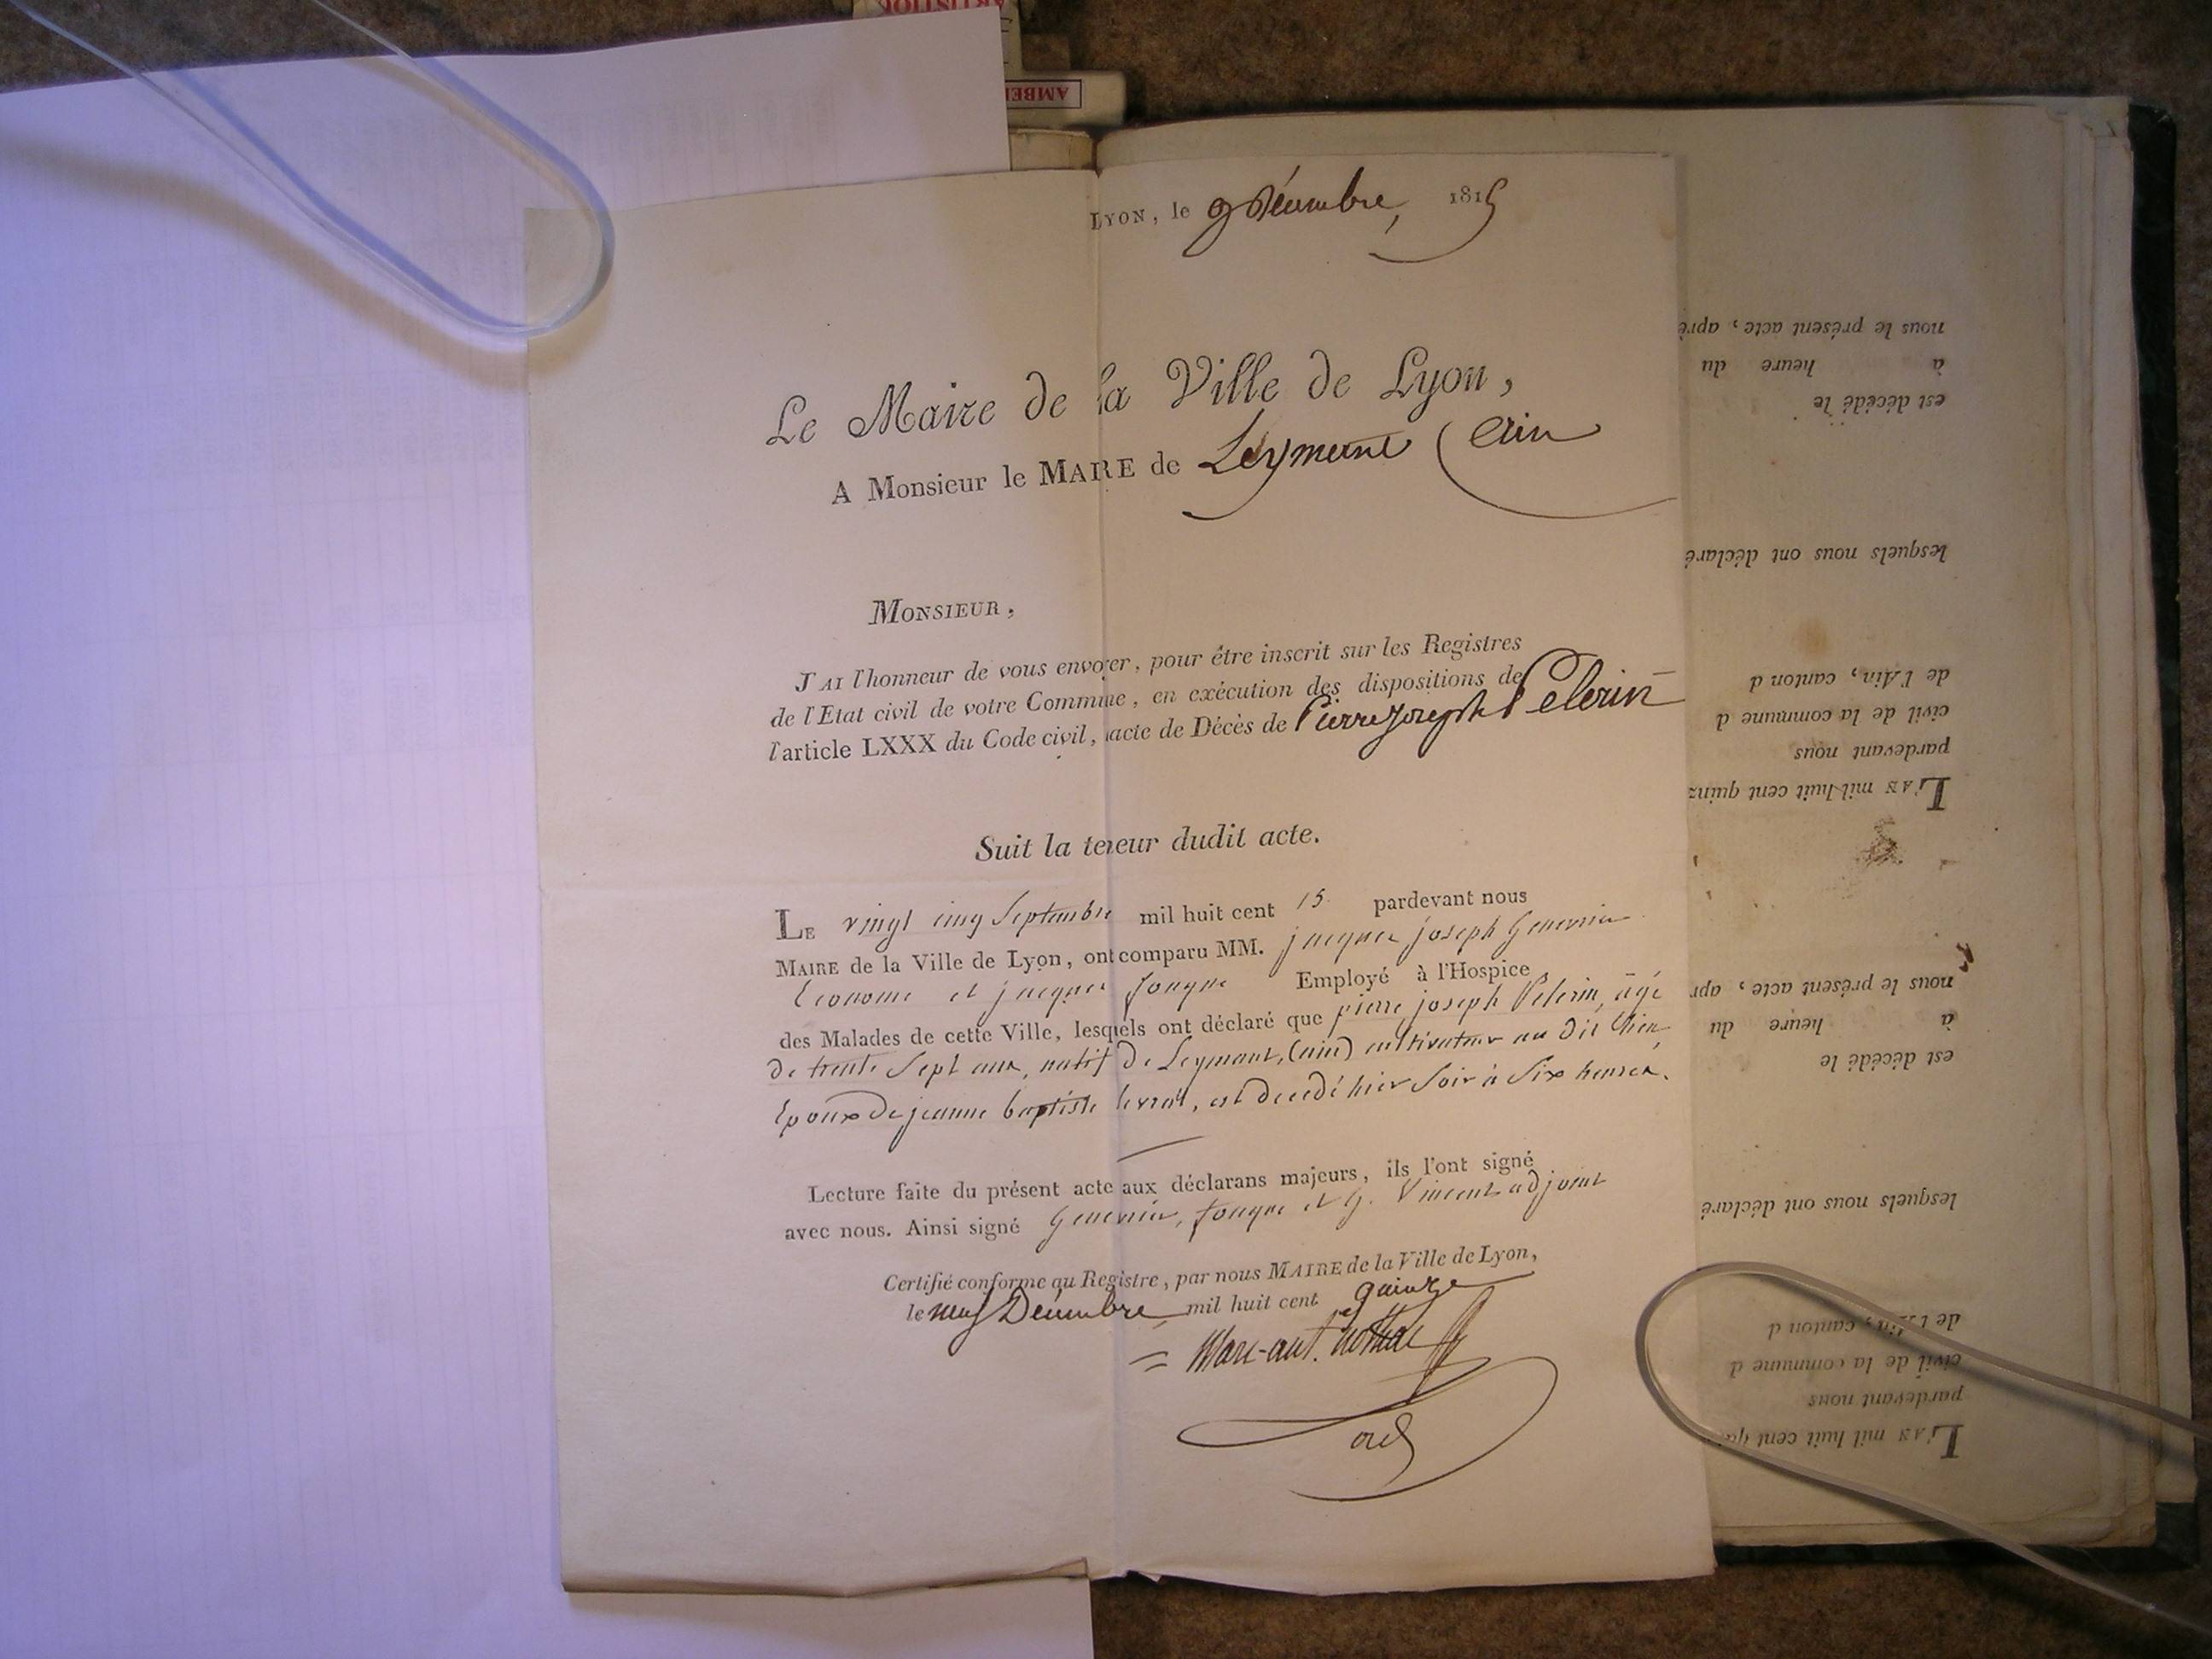 LYON, le 9 Décembre, 1815
Le Maire de la Ville de Lyon,
A Monsieur le MAIRE de Leyment (ain
MONSIEUR,
J'AI l'honneur de vous envoyer, pour être inscrit sur les Registres
de l'Etat civil de votre Commune, en exécution des dispositions de
l'article LXXX du Code civil, acte de Décès de Pierre Joseph Pelerin
Suit la teneur dudit acte.
LE vingt cinq Septembre mil huit cent 15 pardevant nous
MAIRE de la Ville de Lyon, ont comparu MM. jacques joseph
Econome et jacques Employé à l'Hospice
des Malades de cette Ville, lesquels ont déclaré que pierre joseph Pelerin, âgé
de trente Sept ans, natif de Leymant, (ain) cultivateur au dit lieu
Epoux de jeanne baptiste levrat, est decedé hier Soir à Six heures.
Lecture faite du présent acte aux déclarans majeurs, ils l'ont signé
avec nous. Ainsi signé et G. Vincent adjoint
Certifié conforme au Registre, par nous MAIRE de la Ville de Lyon,
le neuf Décembre mil huit cent quinze
Marc-ant.
adj
ARTISTIQU
AMBER
nous le présent acte, aprè
à heure du
est décédé le
lesquels nous ont déclaré
de l'Ain, canton d
civil de la commune d
pardevant nous
L'AN mil huit cent quinz
nous le présent acte, apr
à heure du
est décédé le
lesquels nous ont déclaré
de l'Ain, canton d
civil de la commune d
pardevant nous
L'AN mil huit cent qui